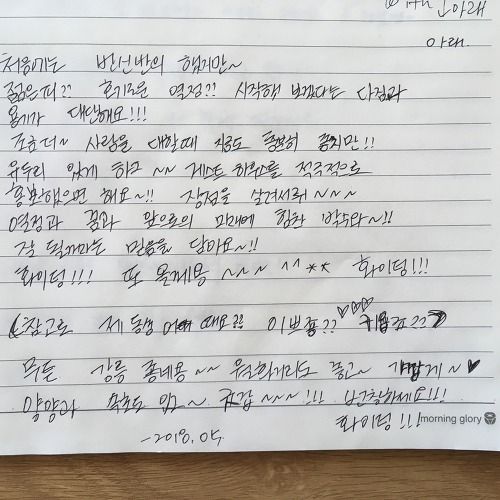 고아래
아래.
처음에는 반신반의 했지만~
젊은피?? 호기로운 열정?? 시작해 보겠다는 다짐과
용기가 대단해요!!!
조금더~ 사람을 대할때 지금도 충분히 좋지만!!
유두리 있게 하고 ~~ 게스트 하우스를 적극적으로
홍황했으면 해요~!! 장점을 살려서뤼~~~
열정과 꿈과 앞으로의 미래에 힘찬 박수와~!!
잘 될꺼라는 믿음을 담아요~!!
화이팅!!! 또 올께용 ~~~ ^^** 화이팅!!!
(참고로 제 동생 어때요?? 이쁘죵?? ♡♡♡
무튼 강릉 좋네용 ~~
양양과 속초도 있고~ !!! 번창하세요!!!
화이팅!!!
-2018.05
morning glory